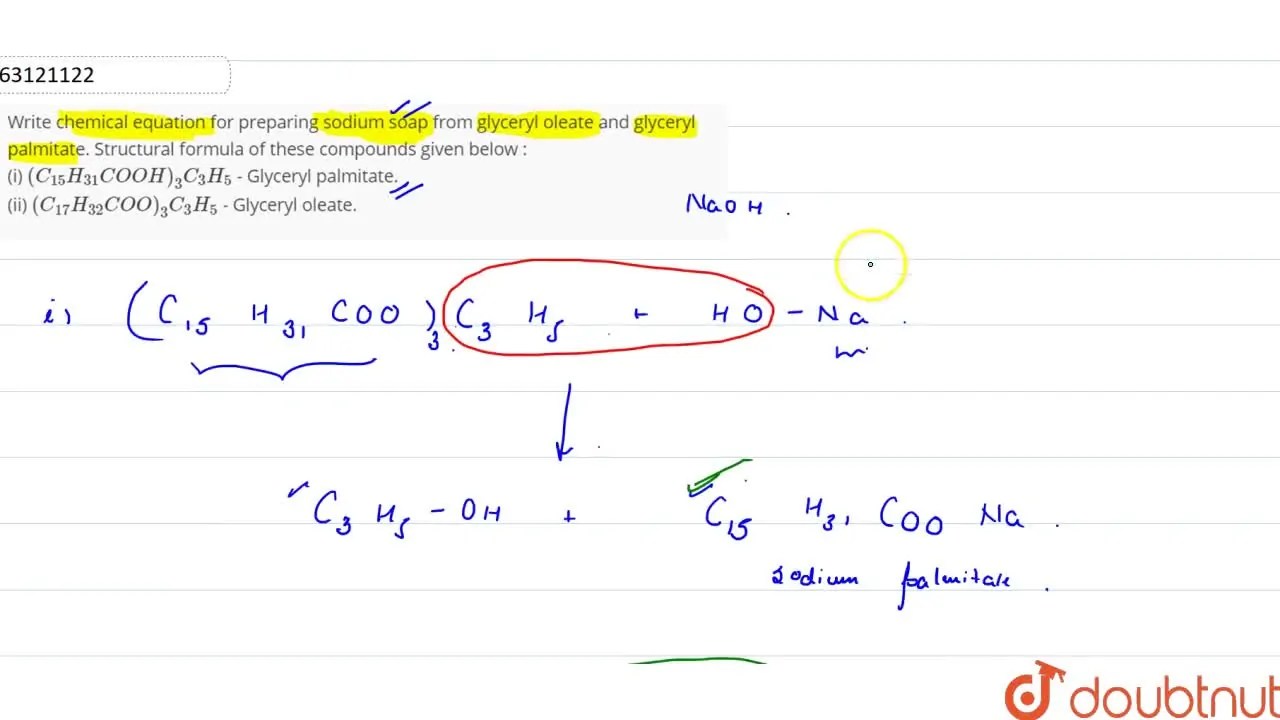 63121122
Write chemical equation for preparing sodium soap from glyceryl oleate and glyceryl
palmitate. Structural formula of these compounds given below :
(i) (C₁₅H₃₁COOH)₃C₃H₅ - Glyceryl palmitate.
(ii) (C₁₇H₃₂COO)₃C₃H₅ - Glyceryl oleate.
NaOH.
i) (C₁₅ H₃₁ COO)₃ C₃ H₅ + HO - Na.
C₃ H₅ - OH + C₁₅ H₃₁ COO Na.
sodium palmitate.
doubtnut